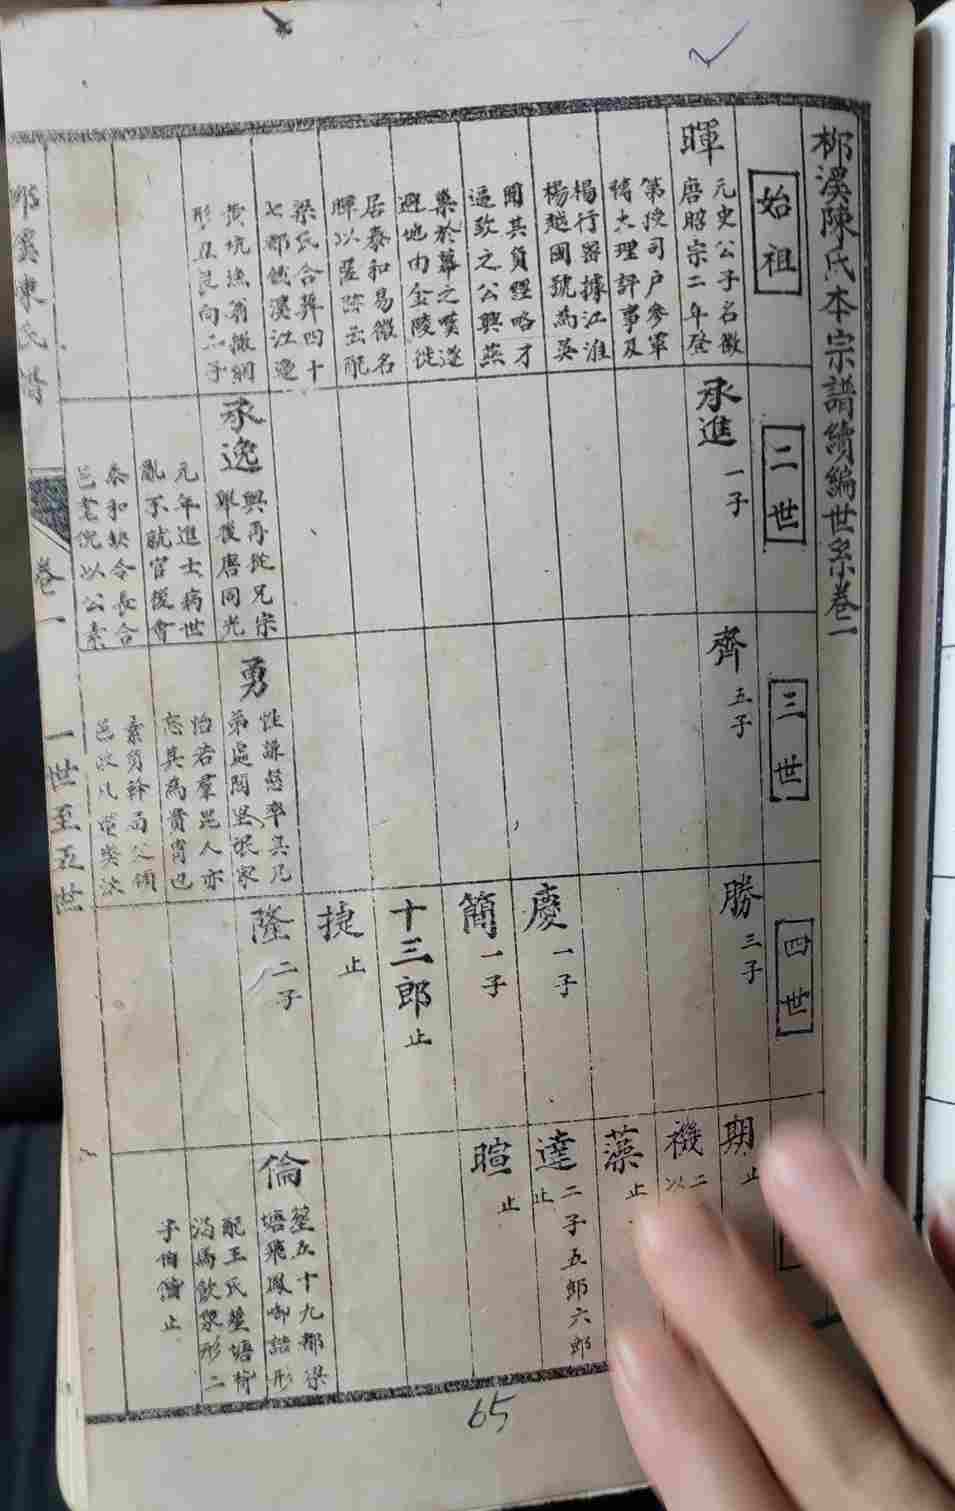 柳溪陳氏本宗譜續編世系卷一
始祖
暉
元史公子名徽
唐昭宗二年登
第授司户參軍
轉大理評事及
楊行密據江淮
楊越國號為吳
聞其負經略才
逼致之公興燕
巢於幕之嘆遂
避地由金陵徙
居泰和易徽名
暉以匿跡云配
梁氏合葬四十
七都
溪江邊
黄坑漁翁撒網
形丑艮向二子
二世
承進
一子
承逸
與再從兄宗
舉後唐同光
元年進士病世
亂不就官後會
泰和缺令長合
邑耄倪以公素
三世
齊
五子
勇
性謙慤率其兄
弟處閭里氓家
怡若羣昆人亦
忘其為貴胄也
素負幹局父領
邑
四世
勝
三子
慶
一子
簡
一子
十三郎
止
捷
止
隆
二子
期
止
機
二
以
藻
止
達
二子五郎六郎
止
暄
止
倫
塟五十九都梁
塘飛鳳啣詰形
配王氏塟塘
渴馬飲泉形二
子伯
止
卷一
一世至五世
65